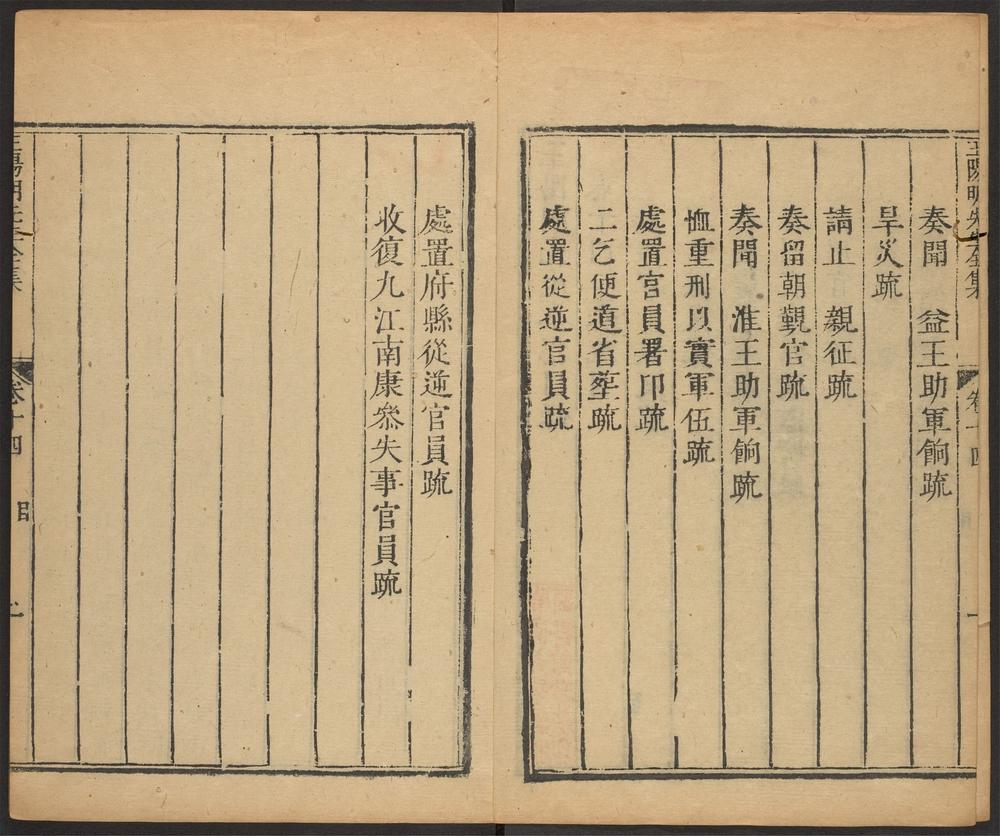 王陽明先生全集 卷十四 一
奏聞 益王助軍餉疏
旱災疏
請止 親征疏
奏留朝覲官疏
奏聞 淮王助軍餉疏
恤重刑以實軍伍疏
處置官員署印疏
二乞便道省塟疏
處置從逆官員疏
處置府縣從逆官員疏
收復九江南康叅失事官員疏
王陽明先生全集 卷十四 目